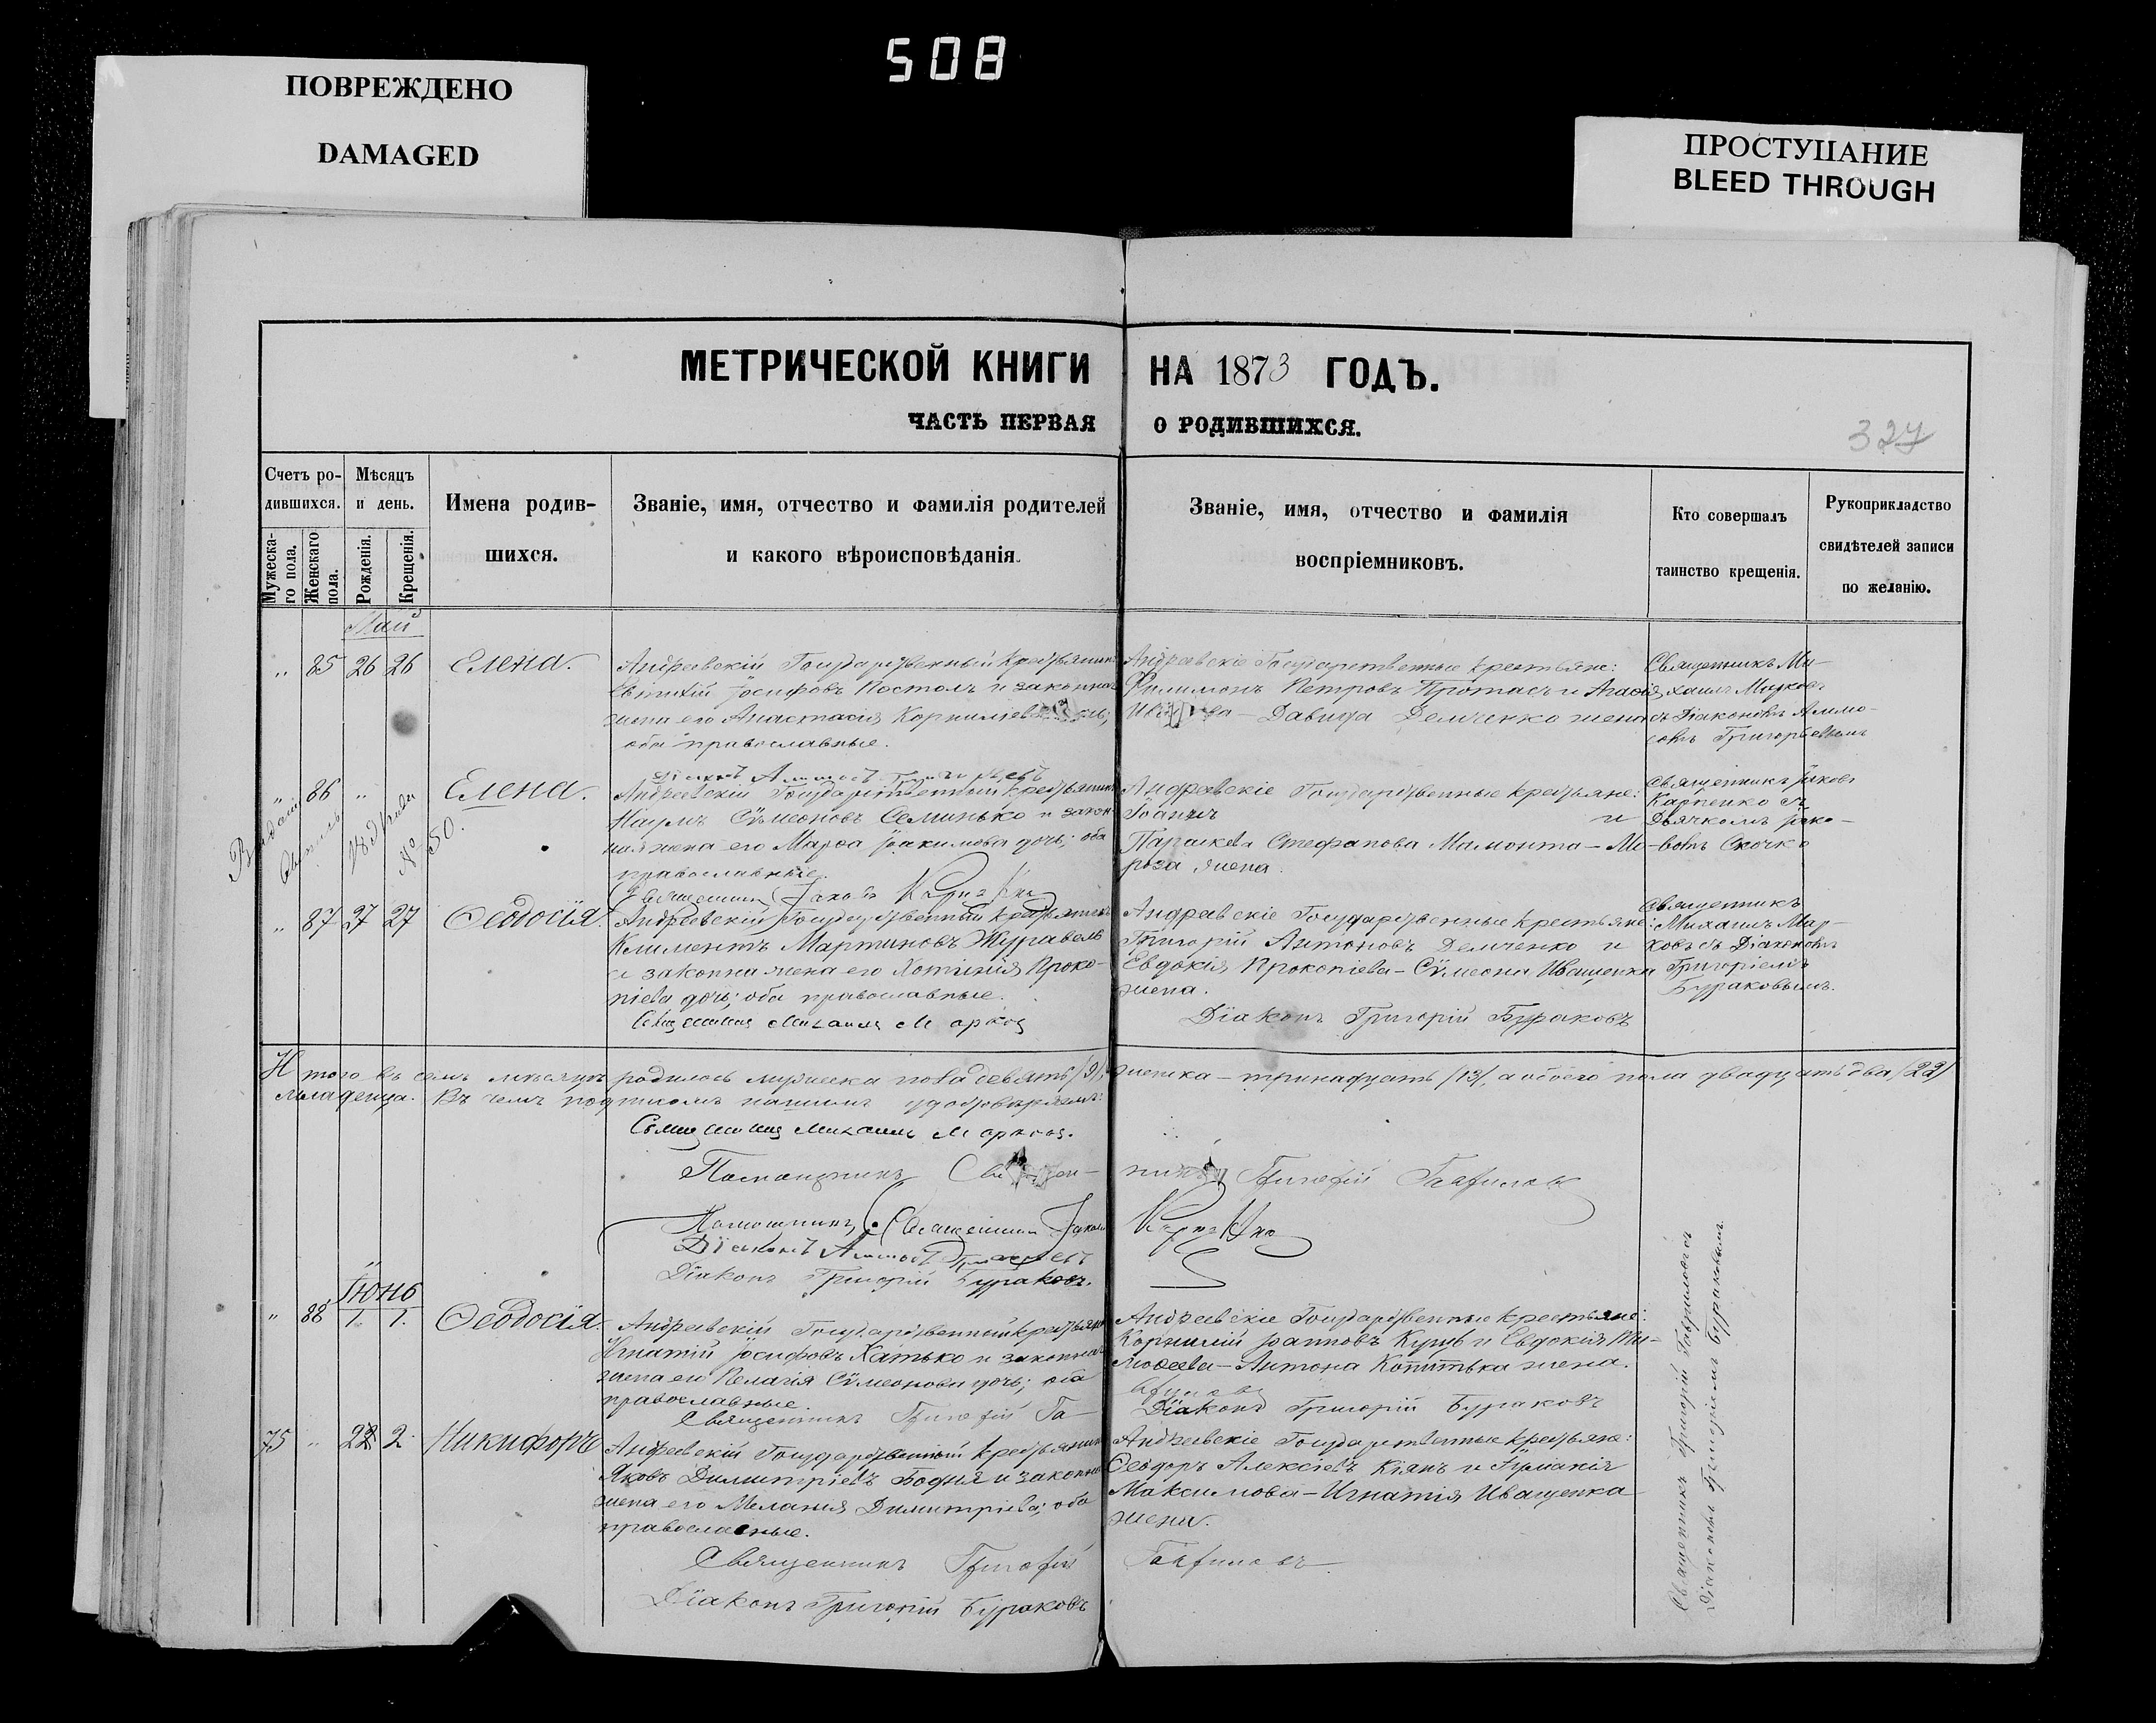 508
ПОВРЕЖДЕНО
DAMAGED
ПРОСТУПАНИЕ
BLEED THROUGH
МЕТРИЧЕСКОЙ КНИГИ НА 1873 ГОДЪ.
ЧАСТЬ ПЕРВАЯ О РОДИВШИХСЯ.
327
Счетъ ро-
дившихся.
Мужеска-
го пола.
Женскаго
пола.
Мѣсяцъ
и день.
Рожденія.
Крещенія.
Имена родив-
шихся.
Званіе, имя, отчество и фамилія родителей
и какого вѣроисповѣданія.
Званіе, имя, отчество и фамилія
воспріемниковъ.
Кто совершалъ
таинство крещенія.
Рукоприкладство
свидѣтелей записи
по желанію.
Май
" 85 26 26 Елена.
Андреевскій Государственный крестьянинъ
Евтихій Іосифовъ Костомъ и законная
жена его Анастасія Корниліева
оба православные.
Андреевскіе Государственные крестьяне:
Филимонъ Петровъ Протасъ и Агафія
Давида Демченко жена
Священникъ Ми-
хаилъ Марковъ
съ Діакономъ Аммо-
сомъ Григорьевымъ
Діаконъ Аммосъ Григорьевъ
" 86 " Елена.
Андреевскій Государственный крестьянинъ
Наумъ Сѵмеоновъ Семинько и закон-
ная жена его Марфа Іоакимова дочь; оба
православные.
Андреевскіе Государственные крестьяне:
Іоаннъ и
Параскева Стефанова Мамонта - Мо-
роза жена.
Священникъ Іаковъ
Карпенко съ
Дьячкомъ Іако-
вомъ Скочко
№ 50.
Священникъ Іаковъ Карпенко
" 87 27 27 Ѳеодосія.
Андреевскій Государственный крестьянинъ
Климентъ Мартиновъ Журавель
и законная жена его Хотинія Проко-
піева дочь; оба православные.
Священникъ Михаилъ Марковъ
Андреевскіе Государственные крестьяне:
Григорій Антоновъ Демченко и
Евдокія Прокопіева - Сѵмеона Иващенка
жена.
Діаконъ Григорій Бураковъ
Священникъ
Михаилъ Мар-
ковъ съ Діакономъ
Григоріемъ
Бураковымъ.
Итого въ семъ мѣсяцѣ родилось мужеска пола девять /9/, женска - тринадцать /13/, а обоего пола двадцать два /22/
младенца. Въ чемъ подписомъ нашимъ удостовѣряемъ:
Священникъ Михаилъ Марковъ.
Помощникъ Григорій Гавриловъ
Помощникъ, Священникъ Іаковъ Карпенко
Діаконъ Аммосъ Григорьевъ
Діаконъ Григорій Бураковъ.
Іюнь
" 88 1. 1. Ѳеодосія.
Андреевскій Государственный крестьянинъ
Игнатій Іосифовъ Хатько и законная
жена его Пелагія Сѵмеонова дочь; оба
православные.
Андреевскіе Государственные крестьяне:
Корнилій Іоанновъ Куцъ и Евдокія Ти-
моѳеева - Антона Копитька жена.
Священникъ Григорій Гавриловъ
Діаконъ Григорій Бураковъ
75 " 2 Никифоръ
Андреевскій Государственный крестьянинъ
Яковъ Димитріевъ Бодня и законная
жена его Меланія Димитріева; оба
православные.
Андреевскіе Государственные крестьяне:
Ѳеодоръ Алексіевъ Кіянъ и
Максимова - Игнатія Иващенка
жена.
Священникъ Григорій Гавриловъ
Діаконъ Григорій Бураковъ
Священникъ Григорій Гавриловъ съ
Діакономъ Григоріемъ Бураковымъ.